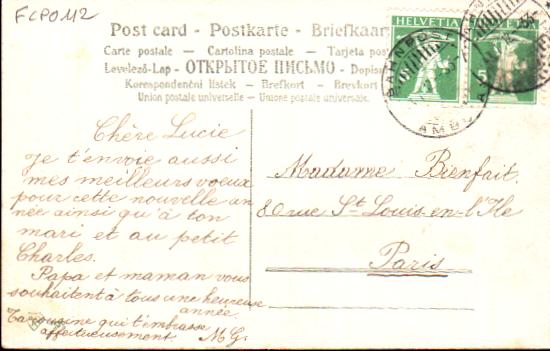 FCPO112
Post card - Postkarte - Briefkaart
Carte postale - Cartolina postale - Tarjeta post
Levelező-Lap - ОТКРЫТОЕ ПИСЬМО - Dopisn
Korespondenční lístek - Brefkort - Brevkort
Union postale universelle - Unione postale universale.
HELVETIA
5
BAHNPOST
AMBU
Chère Lucie
Je t'envoie aussi
mes meilleurs voeux
pour cette nouvelle an
née ainsi qu'à ton
mari et au petit
Charles.
Papa et maman vous
souhaitent à tous une heureuse
année.
Ta cousine qui t'embrasse
affectueusement. M G.
Madame Bienfait.
80 rue St Louis-en-l'Ile
Paris